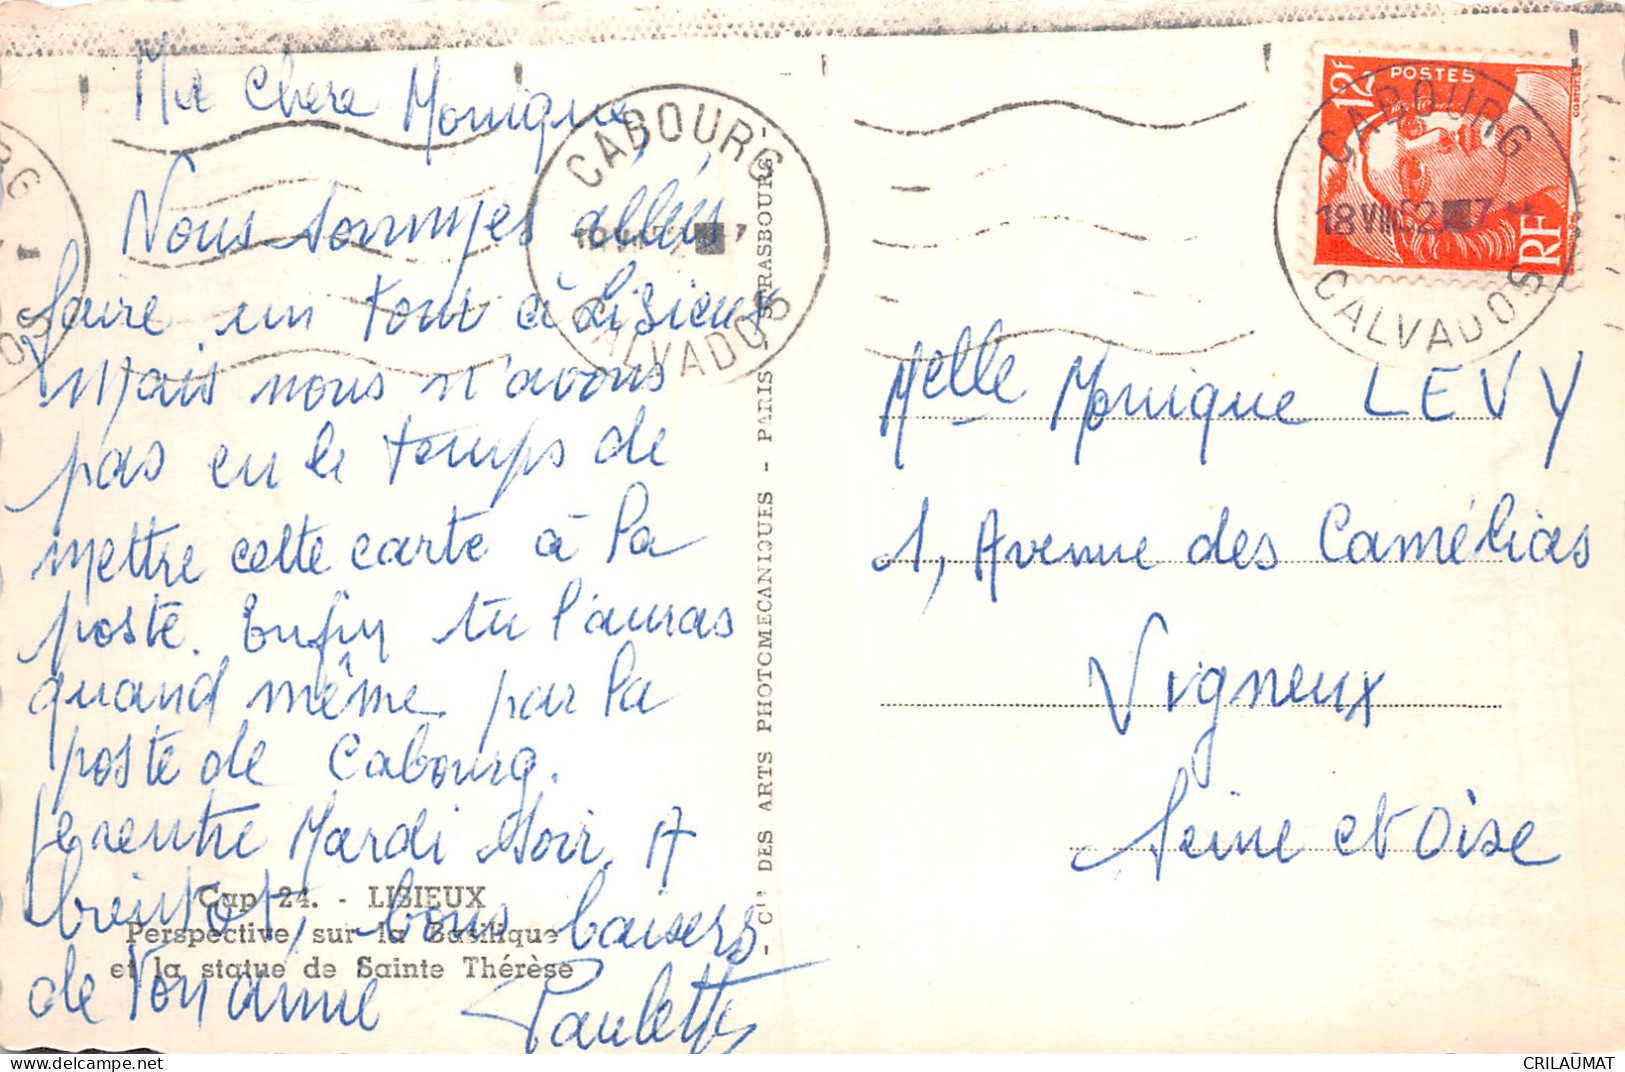 Ma Chere Monique,
Nous sommes allées
faire un tour à Lisieux
mais nous n'avons
pas eu le temps de
mettre cette carte à la
poste. Enfin tu l'auras
quand même par la
poste de Cabourg.
Je rentre Mardi soir. A
bientôt, bons baisers
de Ton amie Paulette
Cap 24. - LISIEUX
Perspective sur la Basilique
et la statue de Sainte Thérèse
- Cie DES ARTS PHOTOMECANIQUES - PARIS - STRASBOURG
CABOURG
CALVADOS
12F
POSTES
RF
CABOURG
18 VIII 52
CALVADOS
Melle Monique LEVY
1, Avenue des Camélias
Vigneux
Seine et Oise
CRILAUMAT